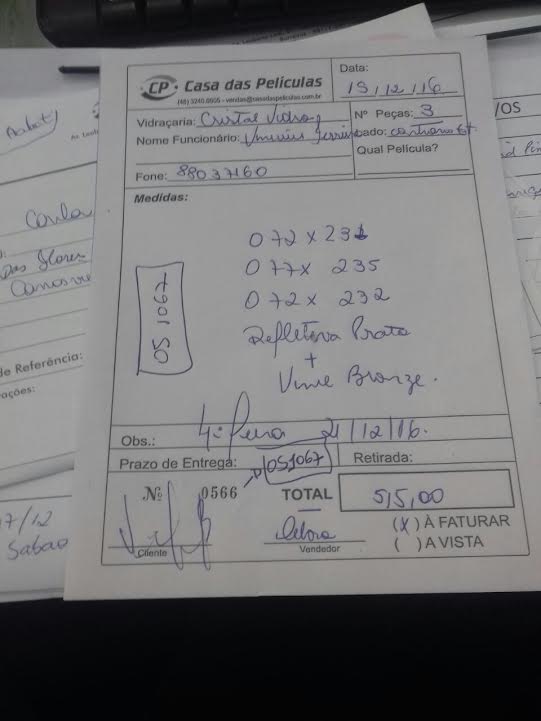 CP Casa das Películas
(48) 3240.0605 - vendas@casadaspeliculas.com.br
Data:
15/12/16
Vidraçaria: Cristal Vidros
Nº Peças: 3
Nome Funcionário: Vinicius
Qual Película?
Fone: 88037160
Medidas:
072 x 231
077 x 235
072 x 232
OS 1067
Refletiva Prata
+
Vinil Bronze.
Obs.: 4ª Feira 21/12/16.
Prazo de Entrega: OS 1067
Retirada:
Nº 0566
TOTAL 515,00
(X) À FATURAR
( ) A VISTA
Cliente
Debora
Vendedor
Carla
Das Flores
de Referência:
ações:
7/12
Sabao
/OS